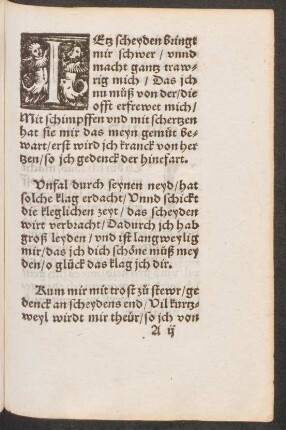 IEtz scheyden bringt
mir schwer / vnnd
macht gantz traw-
rig mich / Das jch
nu můß von der / die
offt erfrewet mich /
Mit schimpffen vnd mit schertzen
hat sie mir das meyn gemüt be-
wart / erst wird jch kranck von her
tzen / so jch gedenck der hinefart.
Vnfal durch seynen neyd / hat
solche klag erdacht / Vnnd schickt
die kleglichen zeyt / das scheyden
wirt verbracht / Dadurch jch hab
groß leyden / vnd ist langweylig
mir / das jch dich schöne müß mey
den / o glück das klag jch dir.
Kum mir mit trost zů stewr / ge
denck an scheydens end / Vil kurtz-
weyl wirdt mir theür / so jch von
A ij